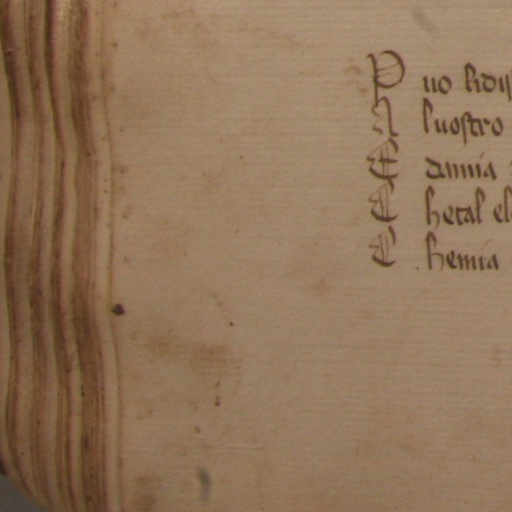 P uo lidis
A luostro
E damia
C hetal el
C hemia